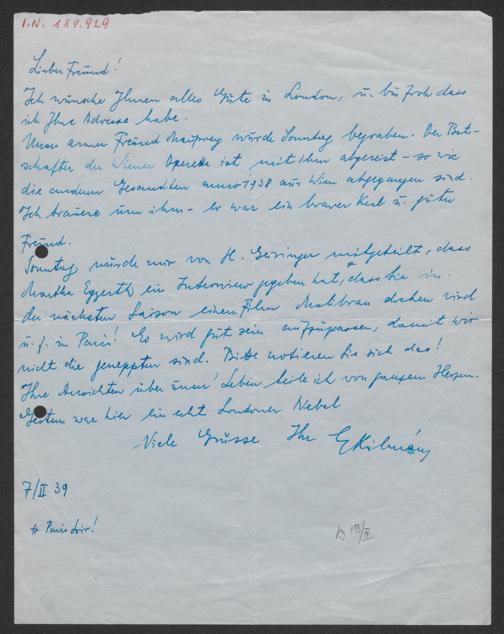 I.N. 189.929
Lieber Freund!
Ich wünsche Ihnen alles Gute in London, u. bin froh dass
ich Ihre Adresse habe.
Unser armer Freund Mauprey wurde Sonntag begraben. Der Bot-
schafter der Wiener Operette ist mit ihm abgereist - so wie
die anderen Gesandten anno 1938 aus Wien abgegangen sind.
Ich trauere um ihn - Er war ein braver Kerl u. guter
Freund.
Sonntag wurde mir von H. Geiringer mitgeteilt, dass
Martha Eggerth ein Interview gegeben hat, dass Sie in
der nächsten Saison einen Film Malibran drehen wird
u. z. in Paris! Es wird gut sein aufzupassen, damit wir
nicht die geneppten sind. Bitte notieren Sie sich das!
Ihre Ansichten über unser Leben teile ich von ganzem Herzen.
Gestern war hier ein echt Londoner Nebel
Viele Grüsse Ihr EKálmán
7/II 39
# Paris Soir!